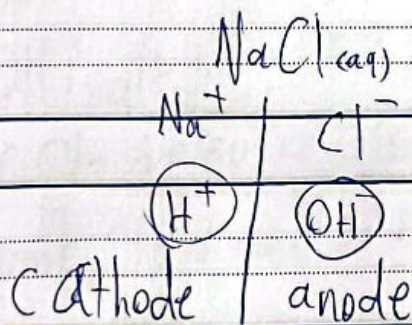 NaCl(aq)
Na⁺ Cl⁻
H⁺ OH⁻
Cathode anode